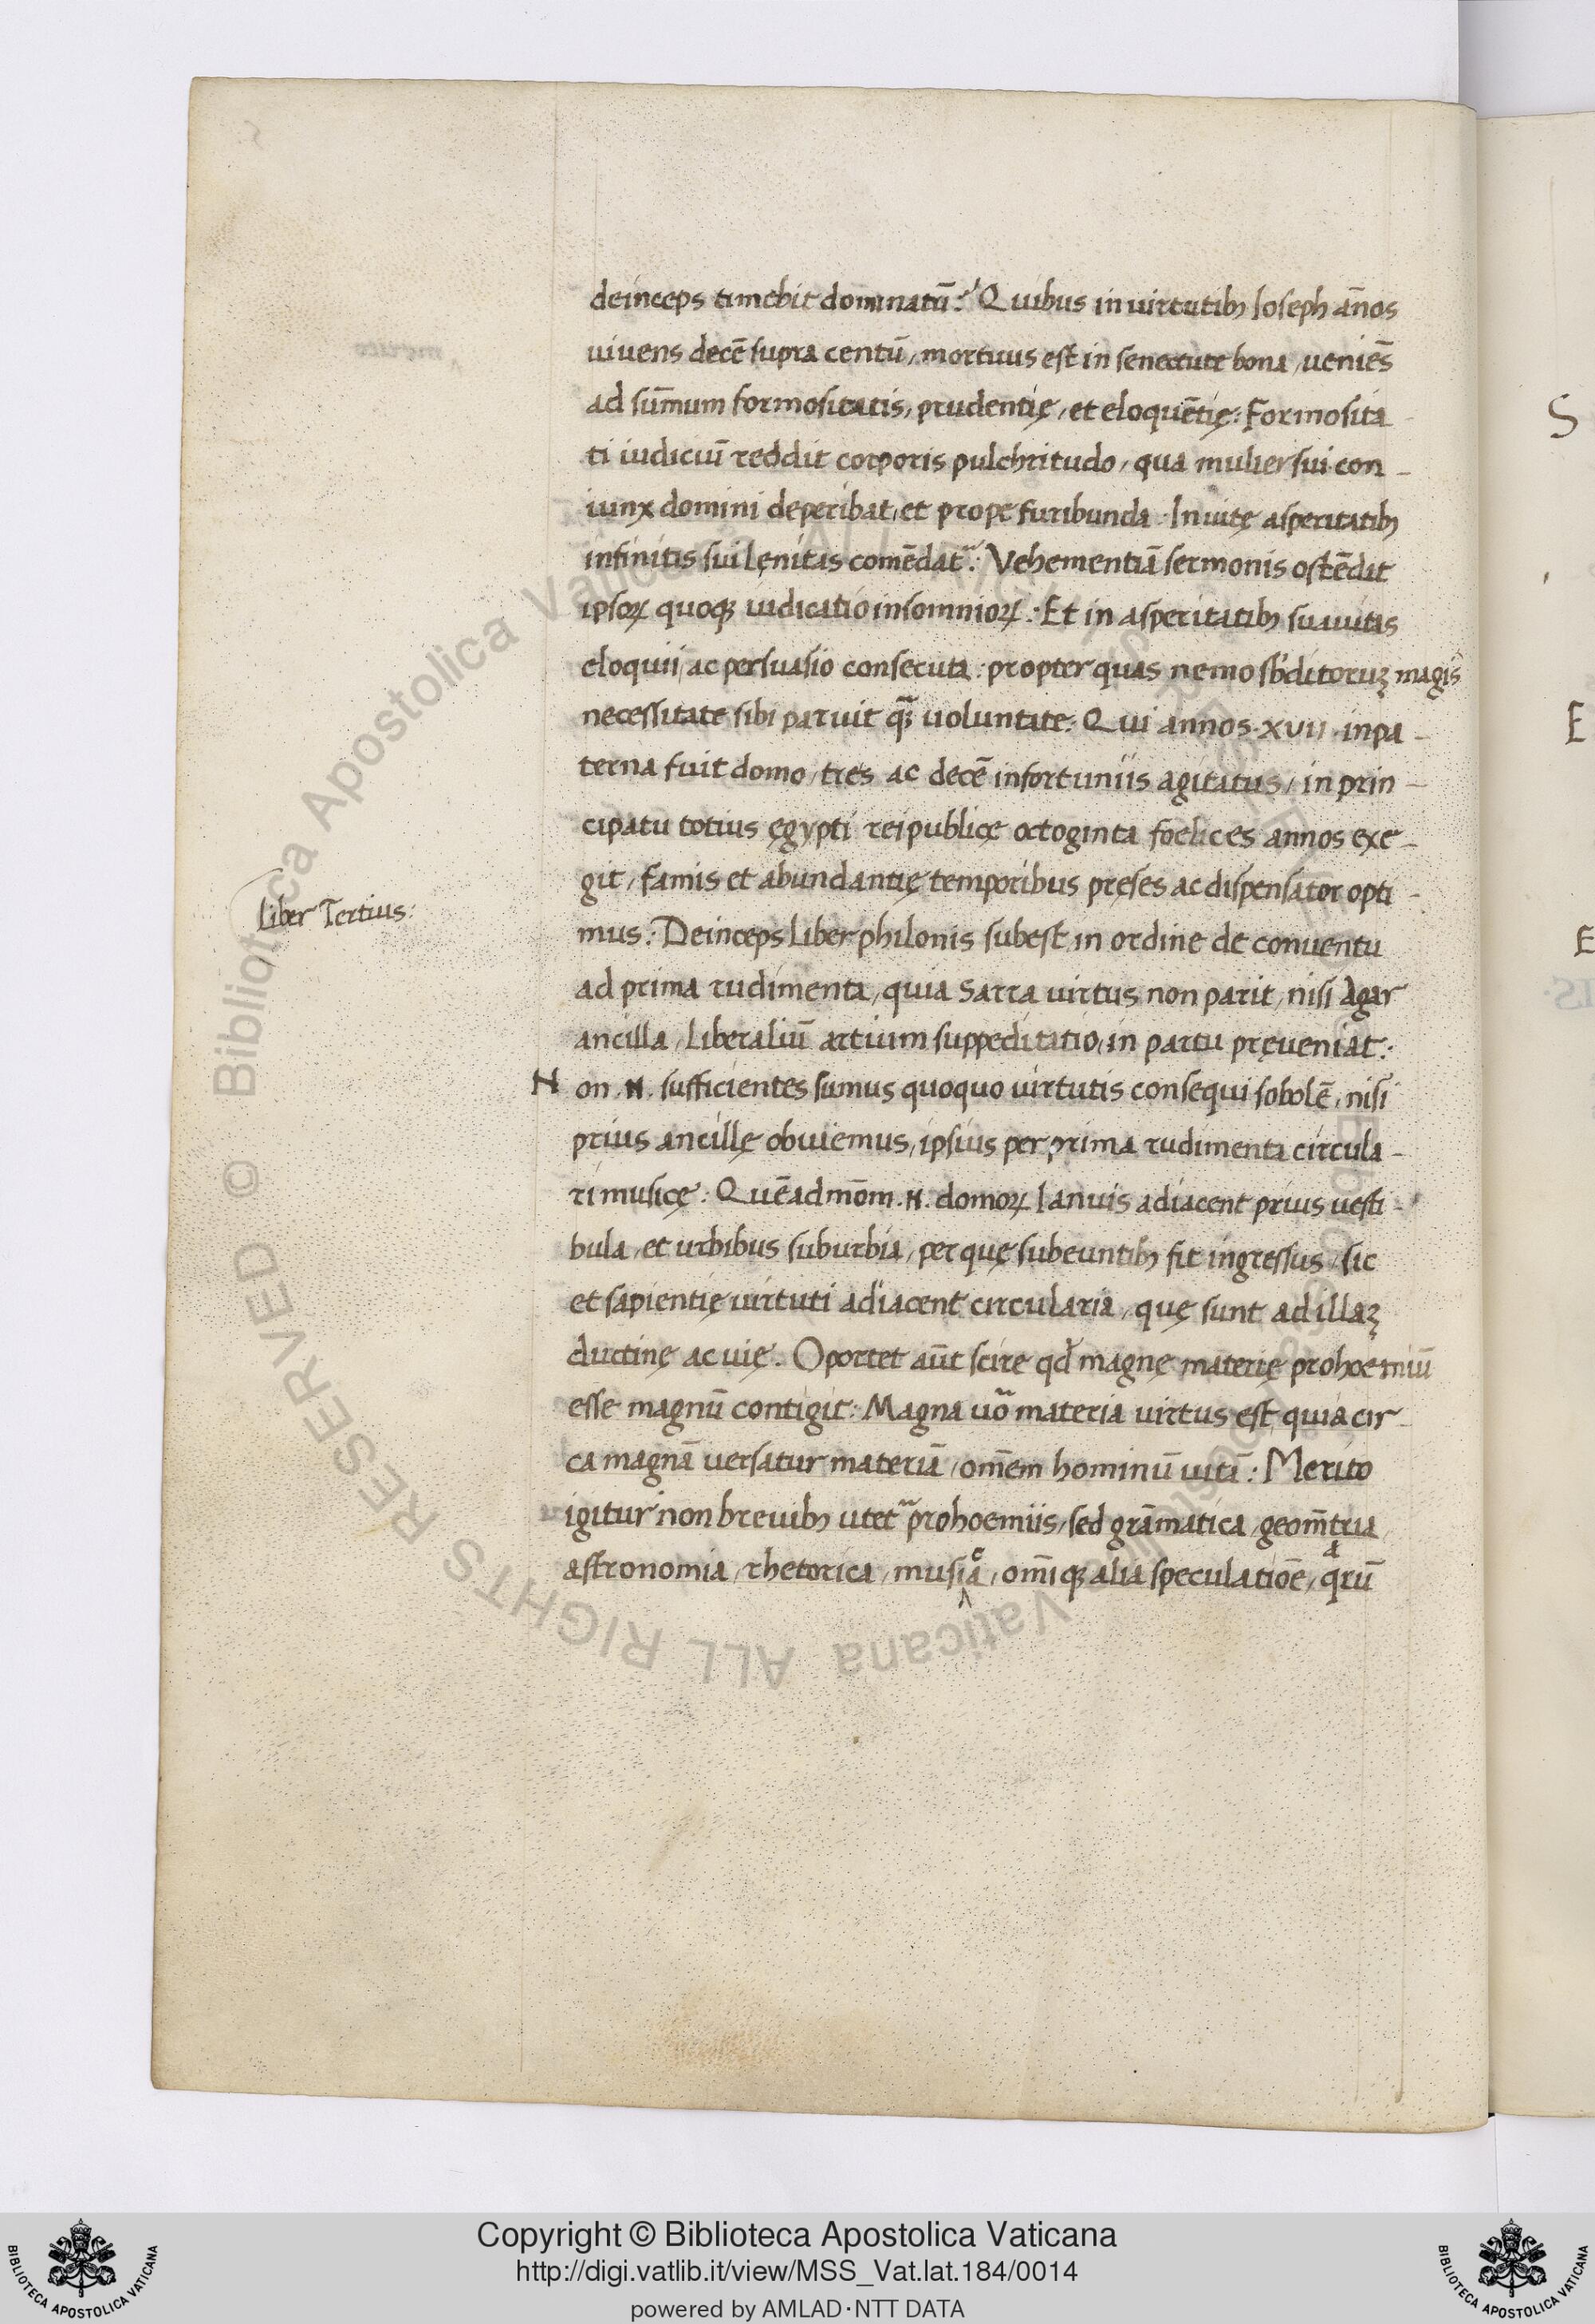 deinceps timebit dominatū? Quibus in uirtutibꝫ Ioseph ān̄os
uiuens decē supra centū, mortuus est in senectute bona, veniēs
ad sūmum formositatis, prudentię, et eloquētię: Formosita
ti iudiciū reddit corporis pulchritudo, qua mulier sui con-
iunx domini deperibat, et prope furibunda. In uitę asperitatibꝫ
infinitis sui lęnitas comēdat᷑: Vehementiā sermonis ostēdit
ipsoꝝ quoqꝫ iudicatio insomnioꝝ: Et in asperitatibꝫ suauitas
eloquii, ac persuasio consecuta: propter quas nemo sb̄ditoruꝫ magis
necessitate sibi paruit qꝫ̄ uoluntate: Qui annos .XVII. in pa-
terna fuit domo, tres ac decē infortuniis agitatus, in prin-
cipatu totius ęgypti reipublicę octoginta foelices annos exe-
git, famis et abundantię temporibus pręses ac dispensator opti-
Liber Tertius:
mus: Deinceps Liber philonis subest in ordine de conuentu
ad prima rudimenta, quia Sarra virtus non parit, nisi Agar
ancilla, Liberaliū artium suppeditatio, in partu pręueniat:
Non .N. sufficientes sumus quoquo virtutis consequi sobolē, nisi
prius ancillę obuiemus, ipsius per prima rudimenta circula-
ri musicę: Quēadmōm .N. domoꝝ Ianuis adiacent prius uesti-
bula, et urbibus suburbia, per quę subeuntibꝫ fit ingressus, sic
et sapientię uirtuti adiacent circularia, quę sunt ad illaꝫ
ductinę ac uię. Oportet aūt scire qd̓ magnę materię prohoemiū
esse magnū contigit: Magna uō materia virtus est, quia cir-
ca magnā versatur materiā, omēm hominū uitā: Merito
igitur non breuibꝫ utet᷑ prohoemiis, sed grāmatica, geom̄tria,
astronomia, rhetorica, musica, om̄iqꝫ alia speculatiōe, qͣrū
Copyright © Biblioteca Apostolica Vaticana
http://digi.vatlib.it/view/MSS_Vat.lat.184/0014
powered by AMLAD·NTT DATA
BIBLIOTECA APOSTOLICA VATICANA
BIBLIOTECA APOSTOLICA VATICANA
© Biblioteca Apostolica Vaticana ALL RIGHTS RESERVED
S
E
E